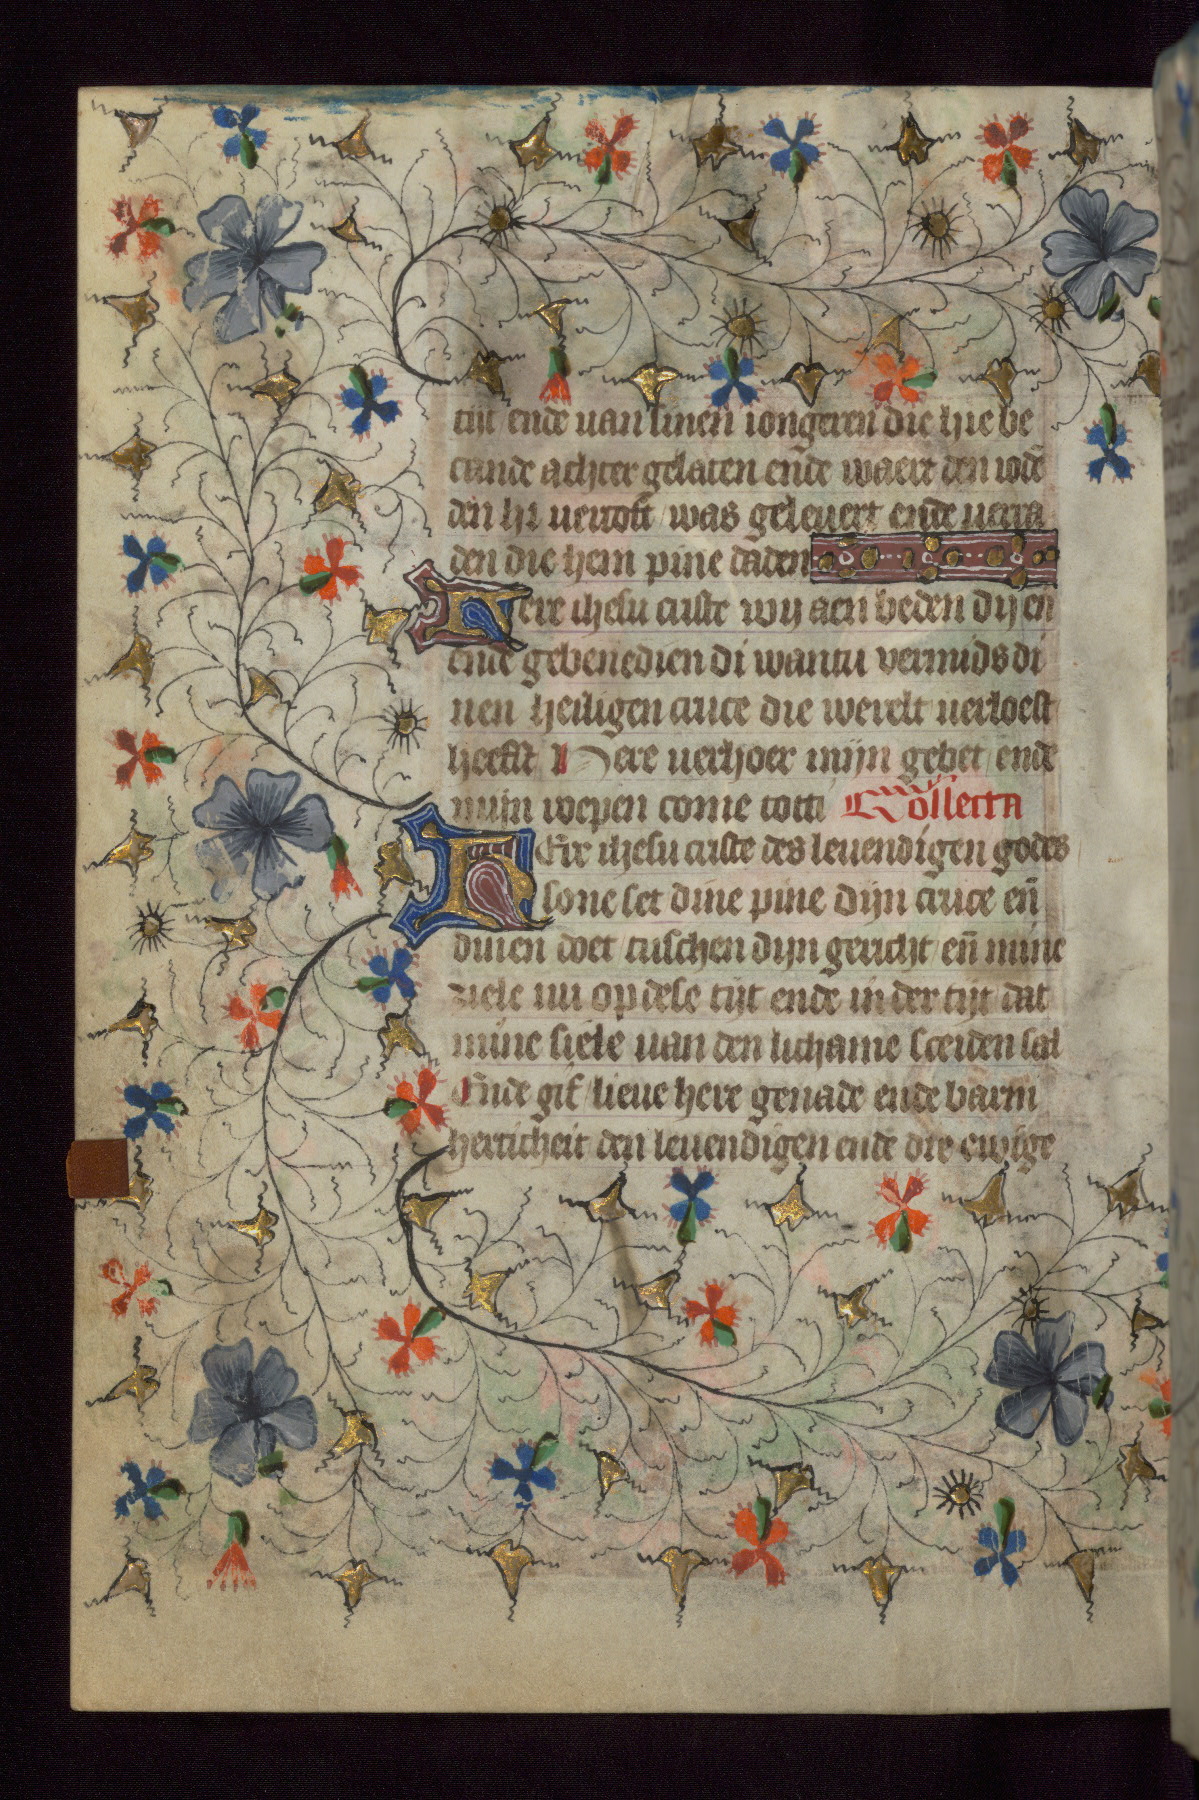 tijt ende uan sinen iongeren die hie be
cande achter gelaten ende waert den iodē
den hi uercoft was geleuert ende uerra
den die hem pine daden
Here ihesu criste wij aen beden dij en
ende gebenedien di wantu vermids di
nen heiligen cruce die werelt uerloest
heefst Here uerhoer mijn gebet ende
mijn wepen come totti Collecta
HEre ihesu criste des leuendigen godes
sone set dine pine dijn cruce eñ
dinen doet tuschen dijn gericht eñ mine
ziele nu op dese tijt ende in der tijt dat
mine siele uan den lichame sceiden sal
Ende gif lieue here genade ende barm
herticheit den leuendigen ende die ewige